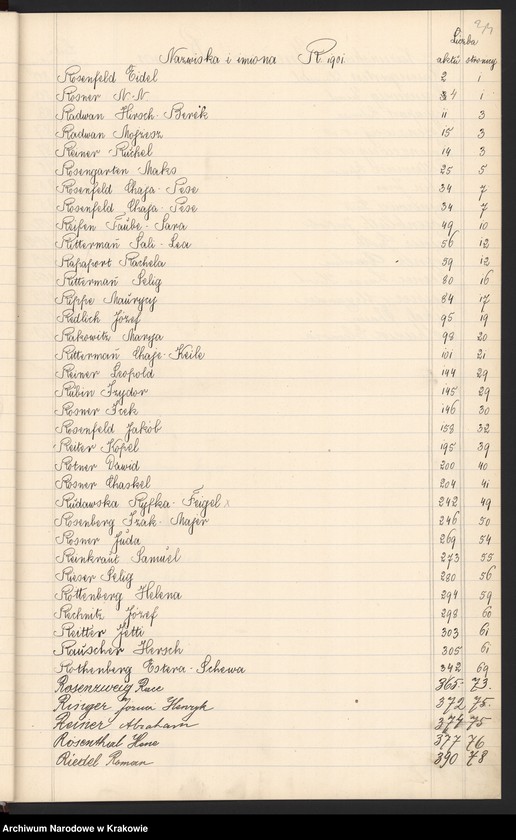 Liczba
Nazwiska i imiona R 1901. aktu stronny
Rosenfeld Eidel 2 1
Rosner N-N 4 1
Radwan Hirsch-Berek 11 3
Radwan Mojżesz 15 3
Reiner Ruchel 14 3
Rosengarten Maks 25 5
Rosenfeld Chaja-Pese 34 7
Rosenfeld Chaja-Pese 34 7
Reifen Taube-Sara 49 10
Ritterman Sali-Lea 56 12
Rapaport Rachela 59 12
Ritterman Selig 80 16
Rippe Maurycy 84 17
Redlich Józef 95 19
Rakowitz Marya 98 20
Ritterman Chaje-Keile 101 21
Reiner Leopold 144 29
Rubin Izydor 145 29
Rosner Icek 146 30
Rosenfeld Jakób 158 32
Reiter Kopel 195 39
Rotner Dawid 200 40
Rosner Chaskel 204 41
Rudawska Ryfka-Feigel 242 49
Rosenberg Izak-Majer 246 50
Rosner Juda 269 54
Reinkraut Samuel 273 55
Rieser Selig 280 56
Rottenberg Helena 294 59
Rechnitz Józef 298 60
Reitter Jetti 303 61
Rauscher Hersch 305 61
Rothenberg Estera-Schewa 342 69
Rosenzweig 365 73.
Ringer Josua Henryk 372 75.
Reiner Abraham 374 75
Rosenthal Hene 377 76
Riedel Roman 390 78
Archiwum Narodowe w Krakowie